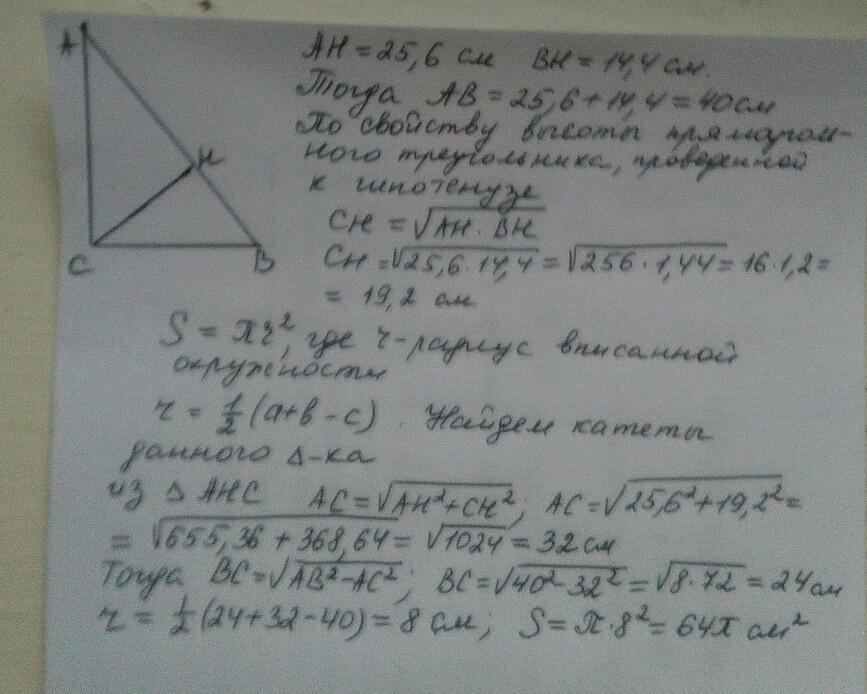 A
H
C
B
AH = 25,6 см BH = 14,4 см.
Тогда AB = 25,6 + 14,4 = 40 см
По свойству высоты прямоуголь-
ного треугольника, проведенной
к гипотенузе
CH = √AH · BH
CH = √25,6 · 14,4 = √256 · 1,44 = 16 · 1,2 =
= 19,2 см
S = πr², где r - радиус вписанной
окружности
r = 1/2 (a+b-c). Найдем катеты
данного Δ-ка
из Δ AHC AC = √AH² + CH²; AC = √25,6² + 19,2² =
= √655,36 + 368,64 = √1024 = 32 см
Тогда BC = √AB² - AC²; BC = √40² - 32² = √8 · 72 = 24 см
r = 1/2 (24 + 32 - 40) = 8 см; S = π · 8² = 64π см²